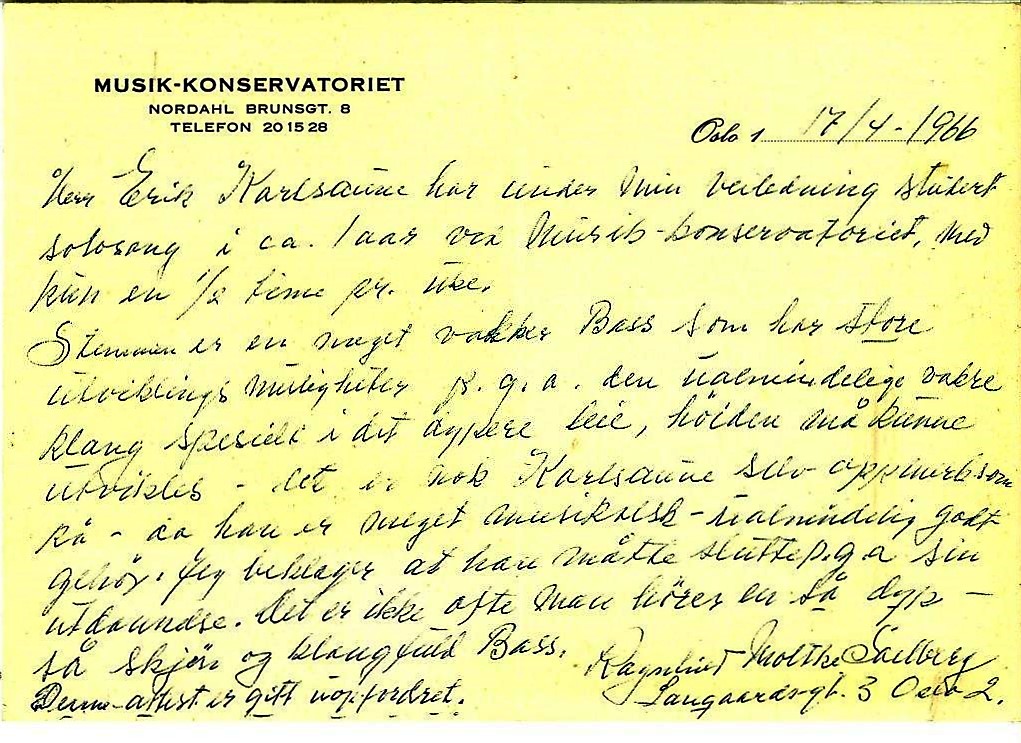 MUSIK-KONSERVATORIET
NORDAHL BRUNSGT. 8
TELEFON 20 15 28
Oslo 1 17/4-1966
Herr Erik Karlsaune har under min veiledning studert
solosang i ca. 1 aar ved Musik-konservatoriet, med
kun en 1/2 time pr. uke.
Stemmen er en meget vakker Bass som har store
utviklings muligheter p.g.a. den ualmindelige vakre
klang spesielt i det dypere leie, höiden må kunne
utvikles - det er nok Karlsaune selv oppmerksom
på - da han er meget musikalsk - ualmindelig godt
gehør. Jeg beklager at han måtte slutte p.g.a sin
utdannelse. Det er ikke ofte man hörer en så dyp -
så skjøn og klangfuld Bass.
Ragnhild Moltke
Denne attest er gitt uopfordret.
Langaardsgt. 3 Oslo 2.